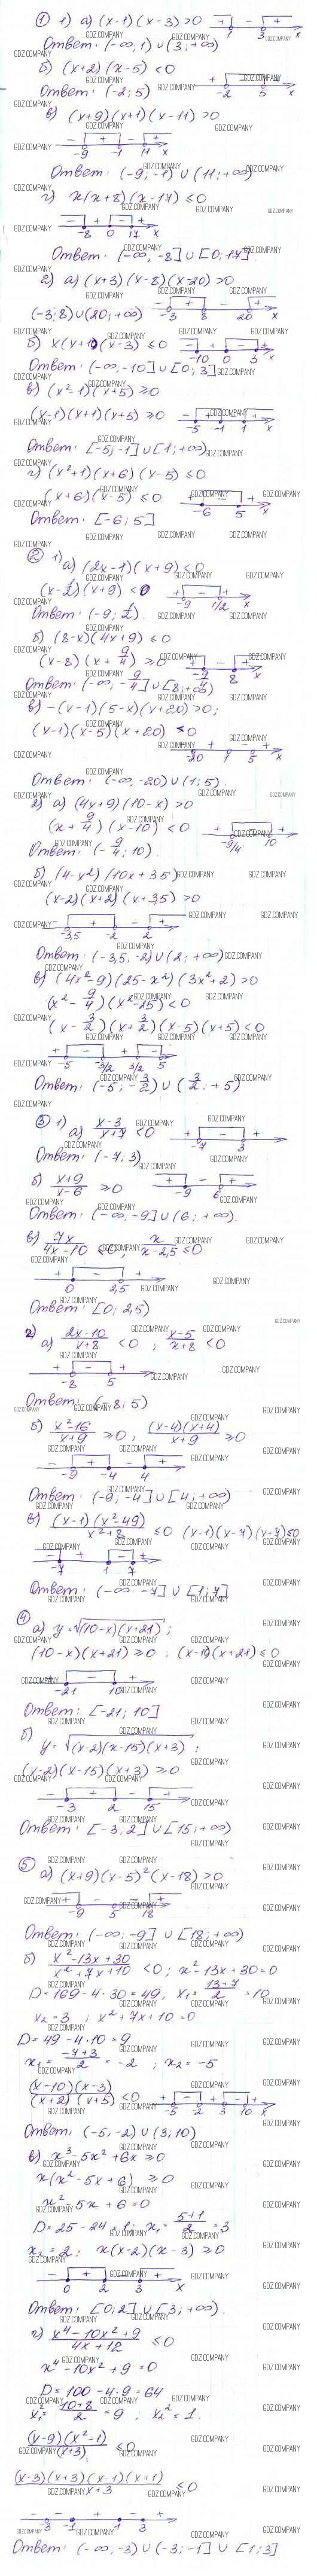 ① 1) а) (x-1)(x-3)>0
Ответ: (-∞; 1) ∪ (3; +∞)
б) (x+2)(x-5)<0
Ответ: (-2; 5)
в) (x+9)(x+1)(x-11)>0
-9 -1 11 x
Ответ: (-9; -1) ∪ (11; +∞)
г) x(x+8)(x-17)≤0
-8 0 17 x
Ответ: (-∞, -8] ∪ [0; 17]
2) а) (x+3)(x-8)(x-20)>0
(-3; 8) ∪ (20; +∞)
-3 8 20 x
б) x(x+10)(x-3)≤0
-10 0 3 x
Ответ: (-∞; -10] ∪ [0; 3]
в) (x²-1)(x+5)≥0
(x-1)(x+1)(x+5)≥0
-5 -1 1 x
Ответ: [-5; -1] ∪ [1; +∞)
г) (x²+1)(x+6)(x-5)≤0
(x+6)(x-5)≤0
-6 5 x
Ответ: [-6; 5]
② 1) а) (2x-1)(x+9)<0
-9 1/2 x
б) (8-x)(4x+9)≤0
(x-8)(x+9/4)≥0
-9/4 8 x
Ответ: (-∞; -9/4] ∪ [8; +∞)
в) -(x-1)(5-x)(x+20)>0;
-20 1 5 x
Ответ: (-∞; -20) ∪ (1; 5).
2) а) (4x+9)(10-x)>0
(x+9/4)(x-10)<0
-9/4 10 x
Ответ: (-9/4; 10).
б) (4-x²)(10x+35)
(x-2)(x+2)(x+3,5)>0
-3,5 -2 2
Ответ: (-3,5; -2) ∪ (2; +∞)
в) (4x²-9)(25-x²)(3x²+2)>0
(x²-9/4)(x²-25)<0
(x-3/2)(x+3/2)(x-5)(x+5)<0
-5 -3/2 3/2 5
Ответ: (-5; -3/2) ∪ (3/2; +5)
③ 1) а) (x-3)/(x+7)<0
-7 3
Ответ: (-7; 3)
б) (x+9)/(x-6)≥0
-9 6
Ответ: (-∞; -9] ∪ (6; +∞).
в) 7x/(4x-10)≤0, x/(x-2,5)≤0
0 2,5
Ответ: [0; 2,5)
2) а) (2x-10)/(x+8)<0; (x-5)/(x+8)<0
-8 5
Ответ: (-8; 5)
б) (x²-16)/(x+9)≥0, (x-4)(x+4)/(x+9)≥0
-9 -4 4
Ответ: (-9; -4] ∪ [4; +∞)
в) (x-1)(x²-49)/(x²+8)≤0 (x-1)(x-7)(x+7)≤0
-7 1 7
Ответ: (-∞ -7] ∪ [1; 7]
④ а) y=√(10-x)(x+21);
(10-x)(x+21)≥0; (x-10)(x+21)≤0
-21 10
Ответ: [-21; 10]
б)
y=√(x-2)(x-15)(x+3);
(x-2)(x-15)(x+3)≥0
-3 2 15
Ответ: [-3; 2] ∪ [15; +∞)
⑤ а) (x+9)(x-5)²(x-18)>0
-9 5 18
Ответ: (-∞; -9] ∪ [18; +∞)
б) (x²-13x+30)/(x²+7x+10)<0; x²-13x+30=0
D=169-4·30=49, x₁=(13+7)/2=10
x₂=3; x²+7x+10=0
D=49-4·10=9
x₁=(-7+3)/2=-2; x₂=-5
(x-10)(x-3)/(x+2)(x+5)<0
-5 -2 3 10 x
Ответ: (-5; -2) ∪ (3; 10)
в) x³-5x²+6x≥0
x(x²-5x+6)≥0
x²-5x+6=0
D=25-24=1; x₁=(5+1)/2=3
x₂=2; x(x-2)(x-3)≥0
0 2 3 x
Ответ: [0; 2] ∪ [3; +∞).
г) (x⁴-10x²+9)/(4x+12)≤0
x⁴-10x²+9=0
D=100-4·9=64
x₁²=(10+8)/2=9; x₂²=1.
(x-9)(x²-1)/(x+3)≤0
(x-3)(x+3)(x-1)(x+1)/(x+3)≤0
-3 -1 1 3
Ответ: (-∞; -3) ∪ (-3; -1] ∪ [1; 3]